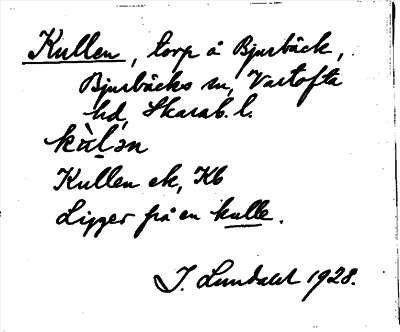 Kullen, torp å Bjurbäck,
Bjurbäcks sn, Vartofta
hd, Skarab. l.
kùl̯ən
Kullen ek, Kb
Ligger på en kulle.
I. Lundahl 1928.